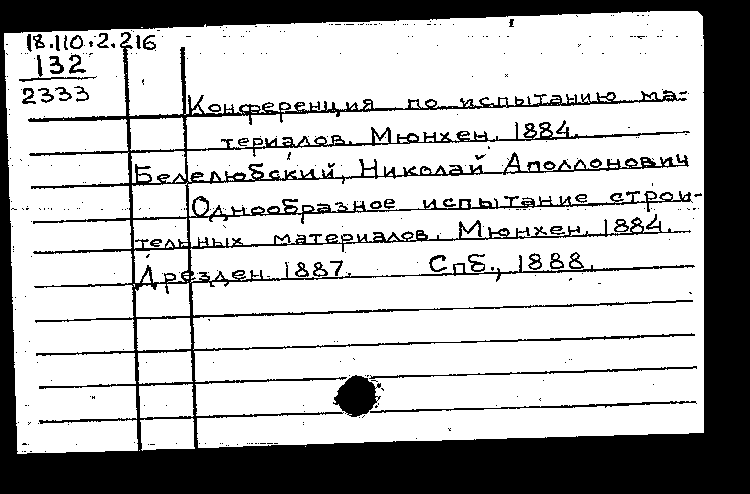 18.110.2.216
132
2333
Конференция по испытанию ма-
териалов. Мюнхен. 1884.
Белелюбский, Николай Аполлонович
Однообразное испытание строи-
тельных материалов. Мюнхен. 1884.
Дрезден. 1887. Спб., 1888.